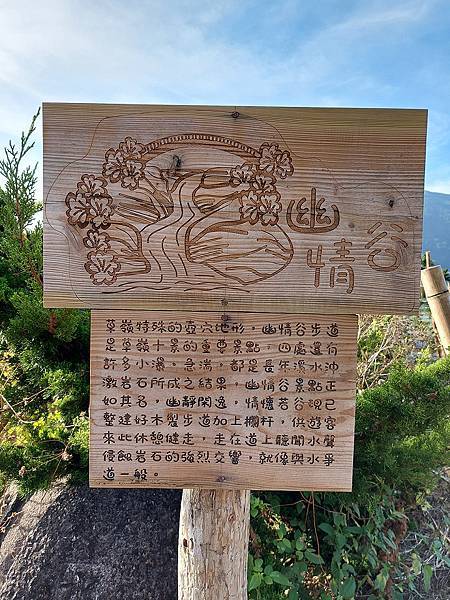 幽情谷
草嶺特殊的壺穴地形，幽情谷步道
是草嶺十景的重要景點，四處還有
許多小瀑、急湍，都是長年溪水沖
激岩石所成之結果，幽情谷景點正
如其名，幽靜閑逸，情懷若谷現已
整建好木製步道加上欄杆，供遊客
來此休憩健走，走在道上聽聞水聲
侵蝕岩石的強烈交響，就像與水爭
道一般。